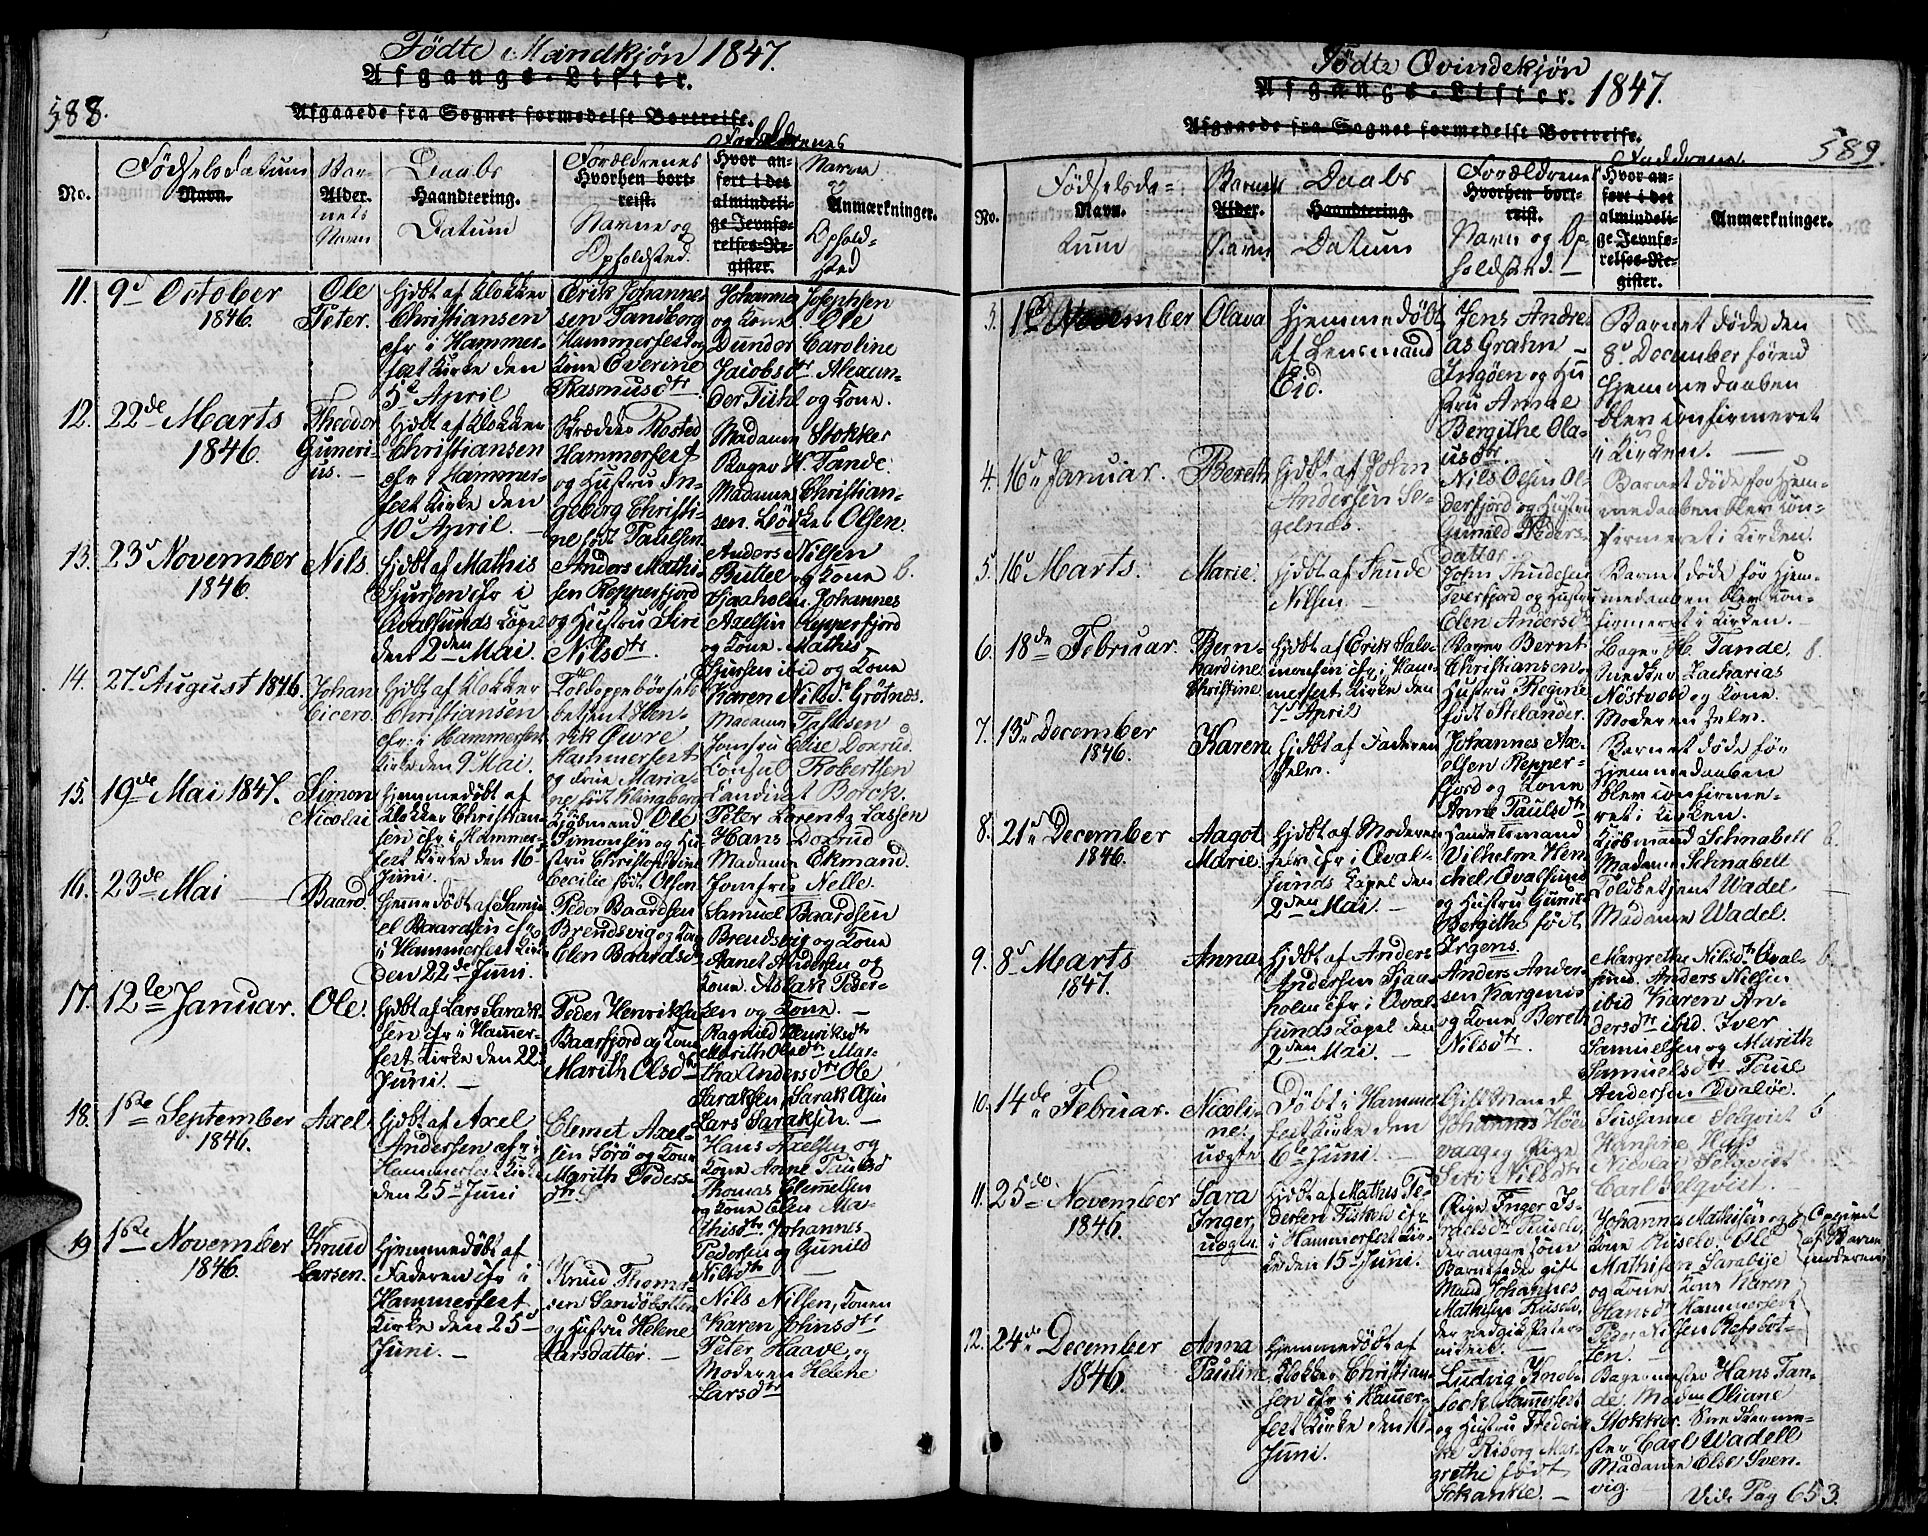 Fødte Mandkjøn 1847.
Afgangs-Lister.
588.
Afgaaede fra Sognet formedelst Bortreise.
No.
Fødselsdatum
Navn.
Bar-
Alder.
nets
Navn
Daabs
Haandtering.
Datum
Forældrenes
Hvorhen bort-
reist.
Navne og
Opholdsted.
Hvor an-
ført i det
almindeli-
ge Jevnfø-
relses-Re-
gister.
Navne
og
Anmærkninger.
Ophold-
sted
11. 9d October
1846.
Ole
Peter.
Hjdbt af Klokker
Christiansen
cfr i Hammer-
fest Kirke den
5t April
Erik Johanne-
sen Tandberg
Hammerfest og
Kone Qverine
Rasmusdtr
Johannes Josephsen
og Kone. Ole
Dunder Caroline
Jacobsdtr. Alexan-
der Tuhl og Kone.
12. 22de Marts
1846.
Theodor
Guneri-
us.
Hjdbt af Klokker
Christiansen
cfr i Hammer-
fest Kirke den
10d April.
Skrædder Rosted
Hammerfest
og Hustru In-
geborg Christi-
ne født Paulsen
Madame Stokker
Bager H. Tande.
Madame Christian-
sen. Lødker Olsen.
13. 23d November
1846.
Nils.
Hjdbt af Mathis
Sjursen cfr i
Qvalsunds Capel
den 2den Mai
Anders Mathi-
sen Repperfjord
og Hustru Siri
Nilsdtr.
Anders Nilsen
Buttel og Kone
Sjaaholm. Johannes
Axelsen Repperfjord
og Kone. Mathis
Sjursen ibid og Kone
Karen Nilsdr Grøtnæs.
14. 27d August 1846.
Johan
Cicero.
Hjdbt af Klokker
Christiansen
cfr. i Hammerfest
Kirke den 9d Mai.
Toldoppebørsels-
betjent Hen-
rik Øwre
Hammerfest
og Kone Maria-
ne født Klingberg
Madame
Jomfru Elise Doxrud.
Consul Robertsen
Candidat Borck.
15. 19de Mai 1847.
Simon
Nicolai
Hjemmedøbt af
Klokker Christian-
sen cfr i Hammer-
fest Kirke den 16d
Juni.
Kjøbmand Ole
Simonsen og Hu-
stru Christoffervine
Cecilie født Olsen
Peter Lorentz Lassen
Hans Doxrud
Madame Ekmand.
Jomfru Nelle.
16. 23de Mai
Baard.
Hjemmedøbt af Samu-
el Baardsen cfr
i Hammerfest Kirke
den 22de Juni.
Peder Baardsen
Brendsvig og Kone
Elen Baardsd
Samuel Baardsen
Brendsvig og Kone
Aanet Andersen og
Kone. Aslak Peder-
sen og Kone.
17. 12te Januar.
Ole.
Hjdbt af Lars Sarak-
sen cfr i Hammer-
fest Kirke den 22d
Juni.
Peder Henriksen
Baarfjord og Kone
Marith Olsdtr
Ragnild Henriksdtr
Marith Olsdtr Mar-
tha Andersdtr Ole
Saraksen, Sarak
Lars Saraksen.
18. 1ste September
1846.
Axel.
Hjdbt af Axel
Andersen cfr i
Hammerfest Kirke
den 25d Juni
Clemet Axel-
sen Sørø og Kone
Marith Peders-
dtr
Hans Axelsen og
Kone Anne Paulsd
Thomas Clemetsen
og Kone Elen Ma-
thisdtr. Johannes
Pedersen og Gunild
Nilsdtr
19. 1ste November
1846.
Knud
Larsen.
Hjemmedøbt af
Faderen cfr i
Hammerfest
Kirke den 25d
Juni.
Knud Thom-
sen Sandøbotten
og Hustru Helene
Larsdatter.
Nils Nilsen, Konen
Karen Johnsdtr
Peter Haave, og
Moderen Helene
Larsdtr
Fødte Qvindekjøn
Afgangs-Lister. 1847.
Afgaaede fra Sognet formedelst Bortreise.
589.
Faddrene
No.
Fødselsda-
Navn.
tum
Barnets
Alder.
Navn
Daabs
Haandtering.
Datum
Forældrenes
Hvorhen bort-
reist.
Navn og Op-
holdsted.
Hvor an-
ført i det
almindeli-
ge Jevnfø-
relses-Re-
gister.
Anmærkninger.
3. November
Olava
Hjemmedøbt
af Lensmand
Eid.
Jens Andre-
as Grahn
Ingøen og Hu-
stru Anne
Bergithe Ola-
usdtr
Barnet døde den
8d December føren
Hjemmedaaben
blev confirmeret
i Kirken.
4. 16d Januar.
Bereth
Hjdbt af John
Andersen Se-
gelnæs.
Nils Olsen Ol-
derfjord og Hustru
Gunild Peders-
datter.
Barnet døde før Hjem-
medaaben blev kon-
firmeret i Kirken.
5. 16d Marts.
Marie.
Hjdbt af Thude
Nilsen.
John Thudesen
Tverfjord og Hustru
Elen Andersdr
Barnet døde før Hjem-
medaaben blev kon-
firmeret i Kirken.
6. 18de Februar.
Bern-
hardine
Christine
Hjdbt af Erik Salo-
monsen cfr, i Ham-
merfest Kirke den
7d April
Bager Bernt
Christiansen og
Hustru Regine
født Stelander.
Bager H. Tande.
Snedker Zacharias
Nøstvold og Kone.
Moderen selv.
7. 13d December
1846.
Karen
Hjdbt af Faderen
selv.
Johannes Ax-
elsen Repper-
fjord og Kone
Anne Paulsdtr
Barnet døde før
Hjemmedaaben
blev confirme-
ret i Kirken.
8. 21d December
1846.
Aagot
Marie.
Hjdbt af Moderen
selv cfr i Qval-
sunds Capel den
2den Mai.
Handelsmand
Vilhelm Hen-
chel Qvalsund
og Hustru Gunild
Bergithe født
Irgens.
Kjøbmand Schnabell
Madame Schnabell
Toldbetjent Wadel
Madame Wadel.
9. 8d Marts
1847.
Anna
Hjdbt af Anders
Andersen Sjaa-
holm cfr, i Qval-
sunds Capel den
2den Mai.
Anders Ander-
sen Kargenis
og Kone Bereth
Nilsdtr
Margrethe Nilsdtr Qval-
sund. Anders Nilsen
ibid Karen An-
dersdtr ibid. Iver
Samuelsen og Marith
Samuelsdtr Paul
Andersen Qvaløe.
10. 14de Februar.
Nicoli-
ne.
uægte
Døbt i Hammer-
fest Kirke den
6te Juni
Gift Mand
Johannes Høe
vaag og Pige
Siri Nilsdtr
Susanne Selqvist
Hansine Hajs
Nicolai Selqvist
Carl Selqvist.
11. 25de November
1846.
Sara
Inger,
uægte.
Hjdbt af Mathis Pe-
dersen Fiskelv cfr,
i Hammerfest Kir-
ke den 15d Juni.
Pige Inger Is-
raelsdtr Ruselv,
der angav som
Barnefader gift
Mand Johannes
Mathisen Ruselv,
der vedgik Pater-
nitet.
Johannes Mathisen og
Kone Ruselv. Ole
Mathisen Saraby
og Kone. Kone Karen
Hansdr Hammerfest
Peder Nilsen Refsbot-
ten.
af Barne-
moderen
12. 24de December
1846.
Anna
Pauline.
Hjemmedøbt af
Klokker Christian-
sen cfr i Hammer-
fest Kirke den 16
Juni.
Ludvig Knob-
lock Hammerfest
og Hustru Frederik-
ke Riborg Mar-
grethe født
Schanke.
Bagermester Hans Tan-
de. Madm Oliane
Stokker. Snedkerme-
ster Carl Wadell
Madame Olsd Sven-
vig.
Vide Pag 653.